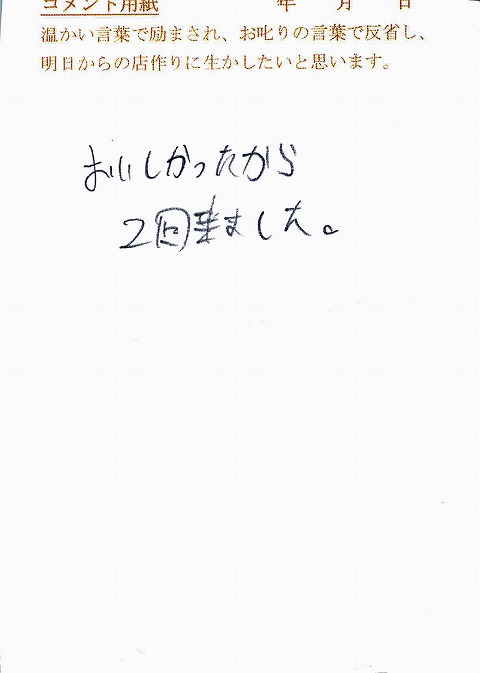 コメント用紙 年 月 日
温かい言葉で励まされ、お叱りの言葉で反省し、
明日からの店作りに生かしたいと思います。
おいしかったから
2回来ました。